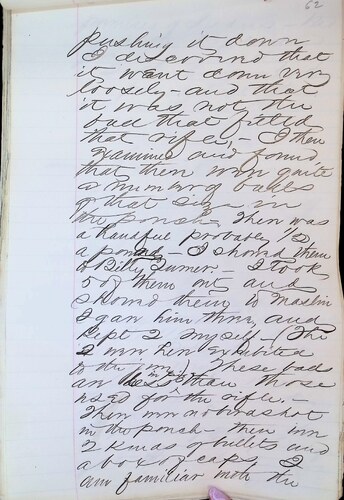 62
pushing it down
I discovered that
it went down very
loosely - and that
it was not the
ball that fitted
that rifle, I then
examined and found
that there were quite
a number of balls
of that size in
the pouch. There was
a handful probably 1/2
a pound - I showed them
to Billy Turner. - I took
5 of them out and
showed them to Maslin
I gave him three and
kept 2 myself - (The
2 were here exhibited
to the jury) These balls
are less than those
used for the rifle. -
There were no bird shot
in the pouch - there were
2 kinds of bullets and
a box of caps I
am familiar with the